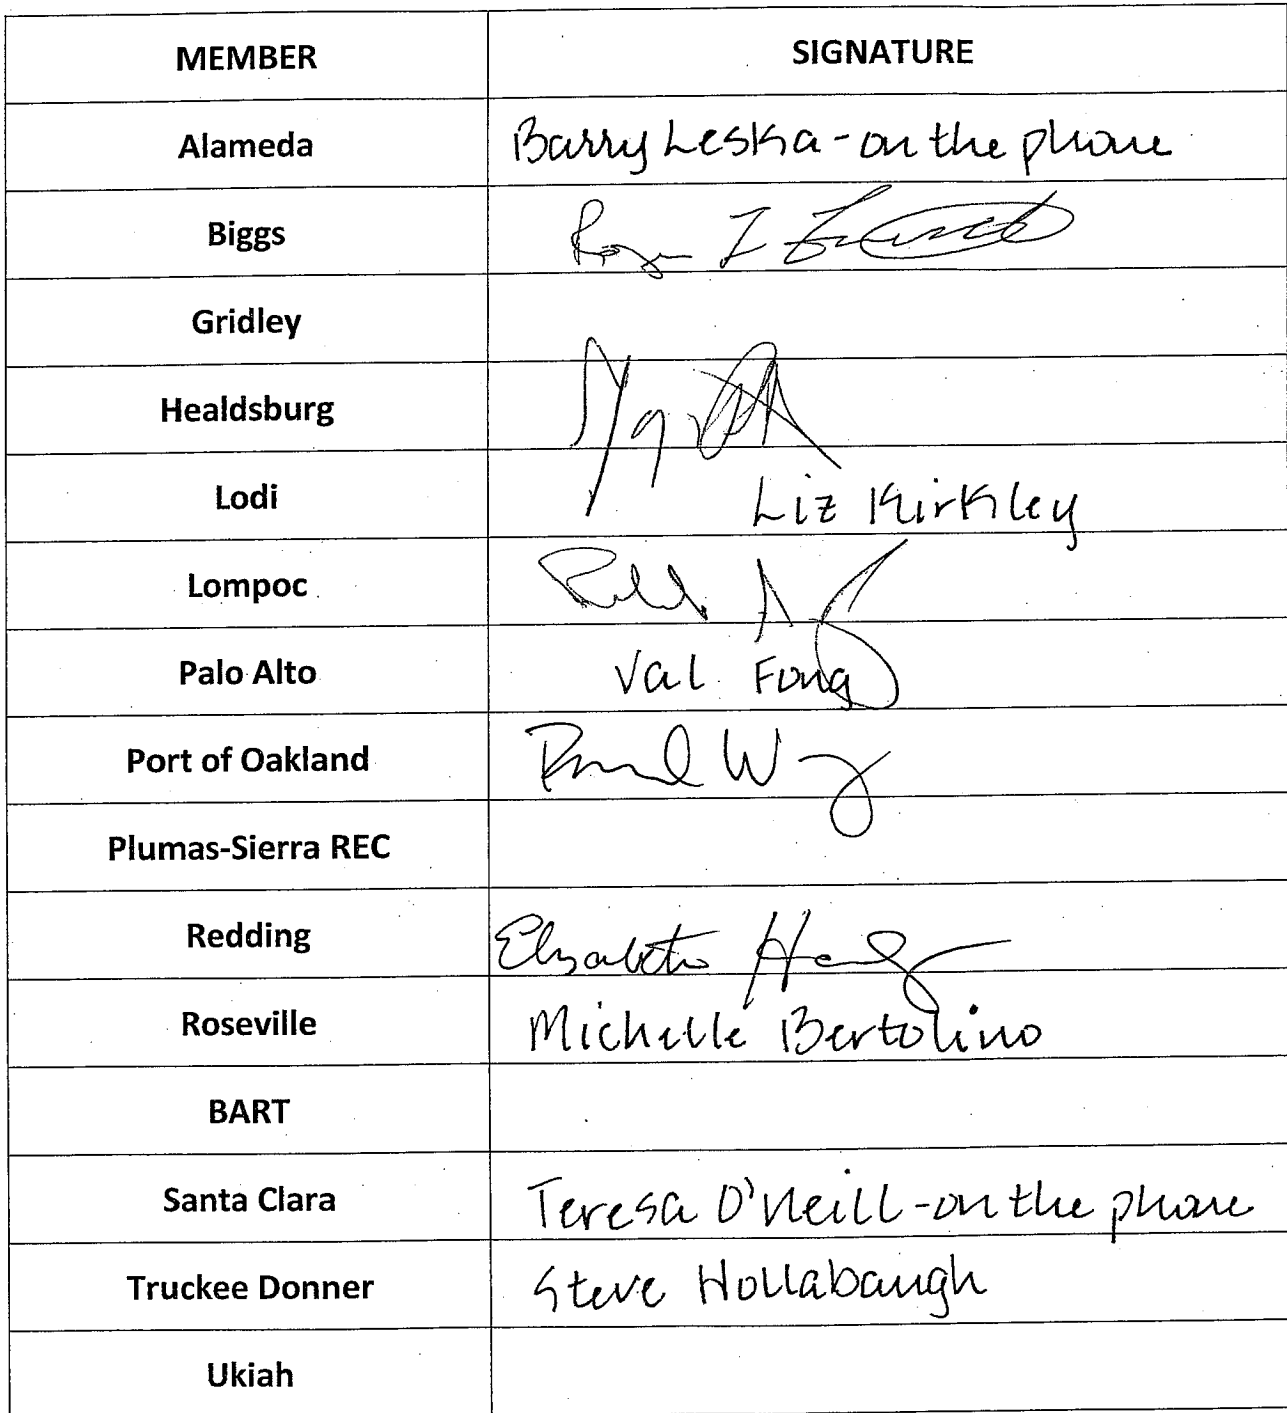 MEMBER SIGNATURE
Alameda Barry Leska - on the phone
Biggs Roger L
Gridley
Healdsburg
Lodi Liz Kirkley
Lompoc
Palo Alto Val Fong
Port of Oakland
Plumas-Sierra REC
Redding Elizabeth
Roseville Michelle Bertolino
BART
Santa Clara Teresa O'Neill - on the phone
Truckee Donner Steve Hollabaugh
Ukiah